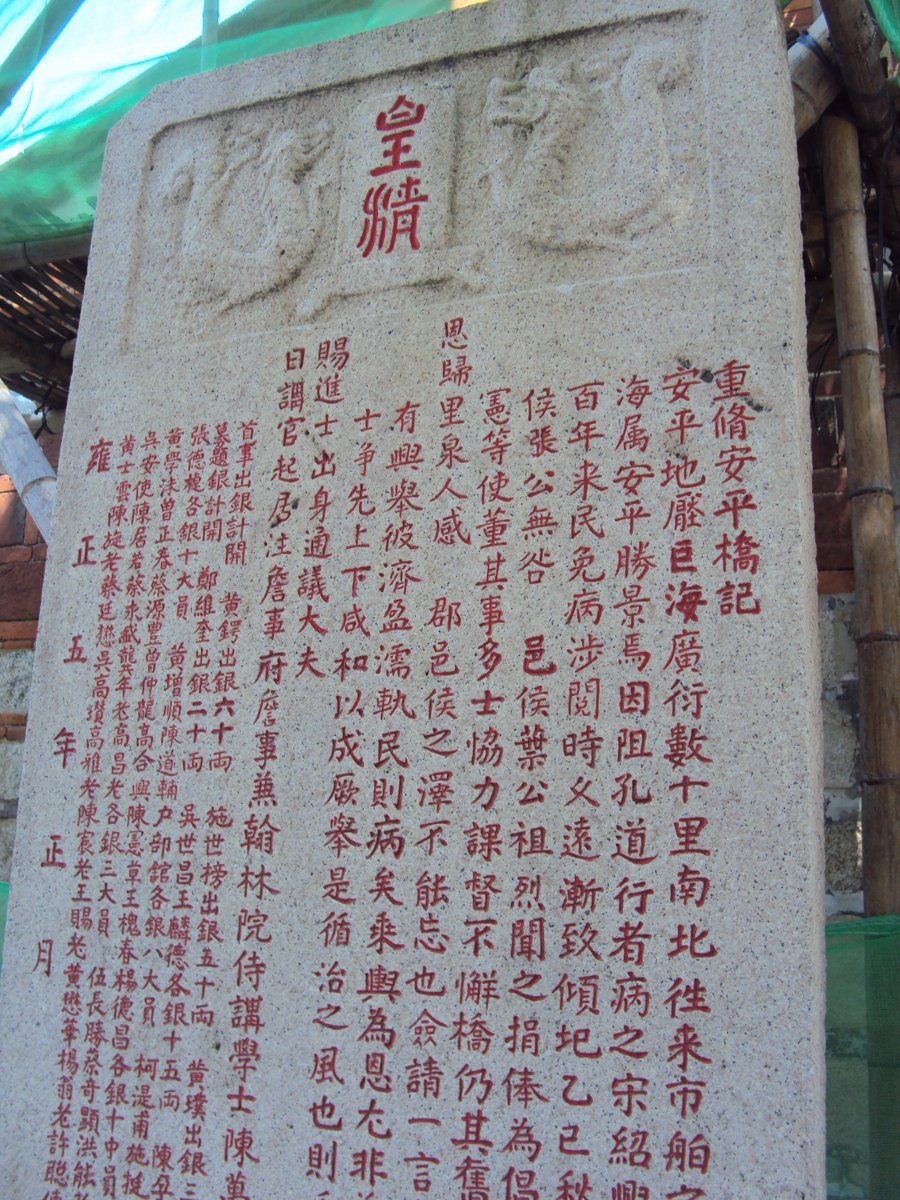 皇清
重脩安平橋記
安平地壓巨海廣衍數十里南北徃来市舶之
海属安平勝景焉因阻孔道行者病之宋紹興
百年来民免病涉閱時乆遠漸致傾圮乙巳秋
侯張公無咎 邑侯葉公祖烈聞之捐俸為倡
憲等使董其事多士協力課督不懈橋仍其舊
恩歸里泉人感 郡邑侯之澤不能忘也僉請一言
有興舉彼濟盈濡軌民則病矣乘輿為恩尢非
士争先上下咸和以成厥舉是循治之風也則
賜進士出身通議大夫
日講官起居注詹事府詹事兼翰林院侍講學士陳萬
首事出銀計開 黄鍔出銀六十両 施世榜出銀五十両 黄璞出銀三
募題銀計開 鄭維奎出銀二十両 吳世昌王麟德各銀十五両 陳
張德 各銀十大員 黄增順陳道輔户部館各銀八大員 柯湜甫施
黄學 曾正春蔡源豊曾仲龍高合興陳憲章王槐春楊德昌各銀十中員
吳安使陳居若蔡来 龔年老高昌老各銀三大員 伍長勝蔡奇顯洪能
黄士雲陳施老蔡廷 吳高瓚高雅老陳宸老王賜老黄懋 楊翁老許聡
雍正五年正月